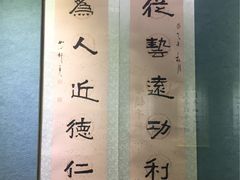 從藝遠功利
為人近德仁